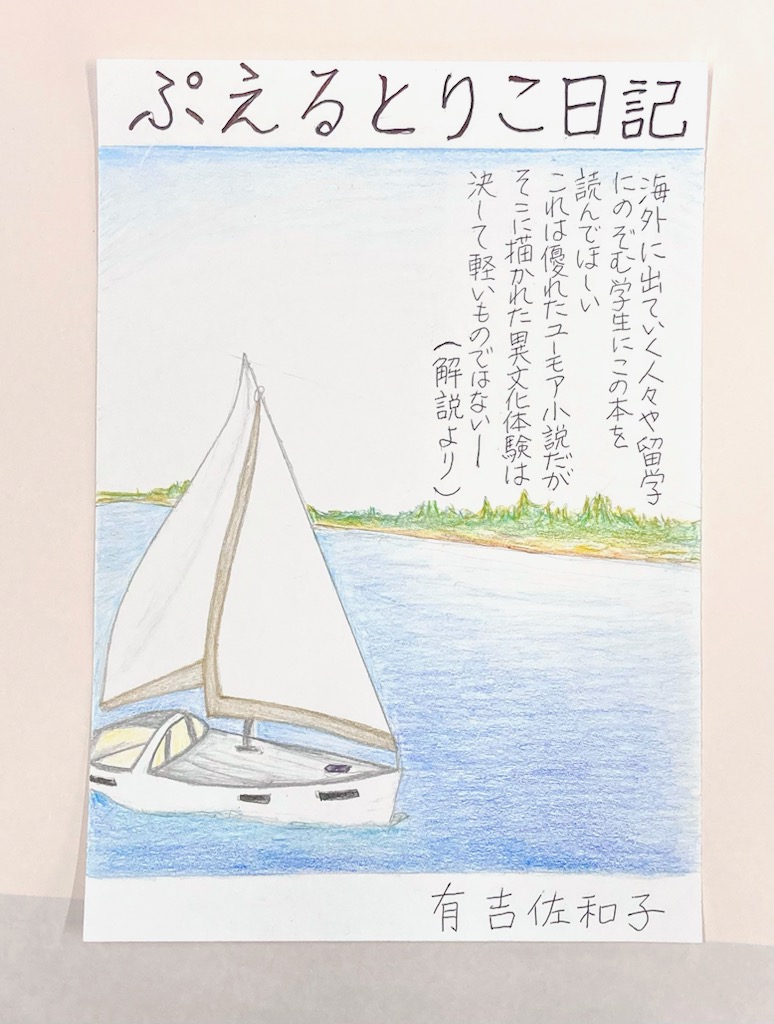 ぷえるとりこ日記
海外に出ていく人々や留学
にのぞむ学生にこの本を
読んでほしい
これは優れたユーモア小説だが
そこに描かれた異文化体験は
決して軽いものではない―
(解説より)
有吉佐和子